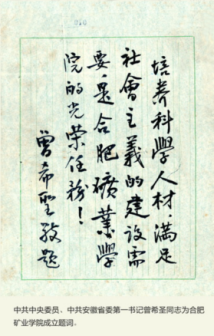 培养科學人材，满足
社會主義的建设需
要，是合肥礦業學
院的光荣任務！
曾希聖敬题
中共中央委员、中共安徽省委第一书记曾希圣同志为合肥
矿业学院成立题词。